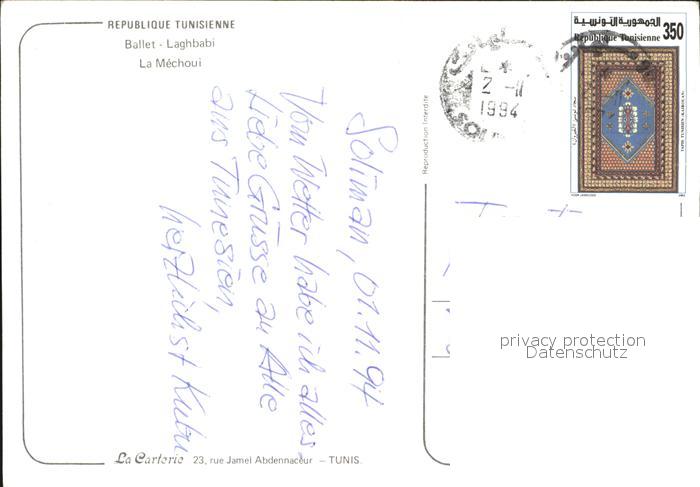 REPUBLIQUE TUNISIENNE
Ballet - Laghbabi
La Méchoui
Soliman, 01.11.94
Vom Wetter habe ich alles.
Liebe Grüsse an Alle
aus Tunesien,
herzlichst
La Carterie 23, rue Jamel Abdennaceur – TUNIS.
Reproduction Interdite
2 -11
1994
الجمهورية التونسية
République Tunisienne 350
privacy protection
Datenschutz